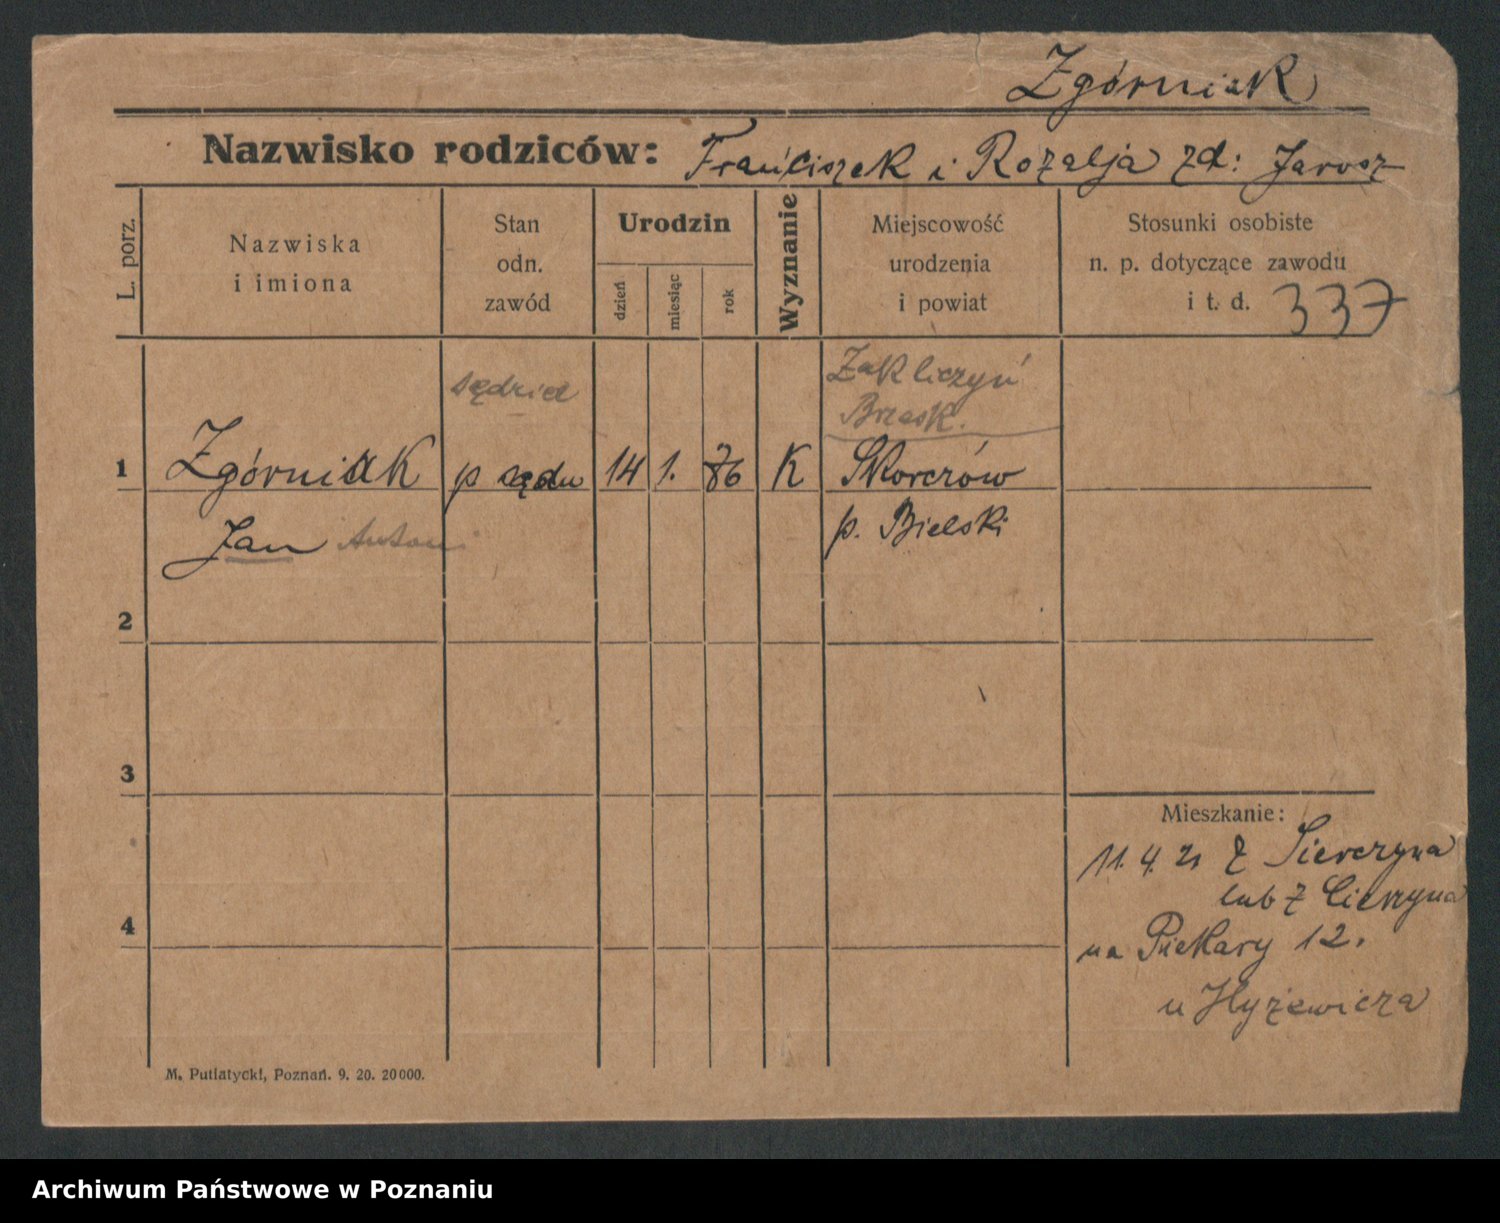 Zgórniak
Nazwisko rodziców: Franciszek i Rozalja zd: Jarosz
L. porz.
Nazwiska
i imiona
Stan
odn.
zawód
Urodzin
dzień
miesiąc
rok
Wyznanie
Miejscowość
urodzenia
i powiat
Stosunki osobiste
n. p. dotyczące zawodu
i t. d. 337
sędzia
Zakliczyń
Brzesk.
1 Zgórniak p sędu 14 1. 76 K Skorczów
Jan Antoni p. Bielski
2
3
4
Mieszkanie:
11. 4. 21 Z Sierczyna
lub Z Cierzyna
na Piekary 12.
u Hyżewicza
M. Putiatycki, Poznań. 9. 20. 20000.
Archiwum Państwowe w Poznaniu